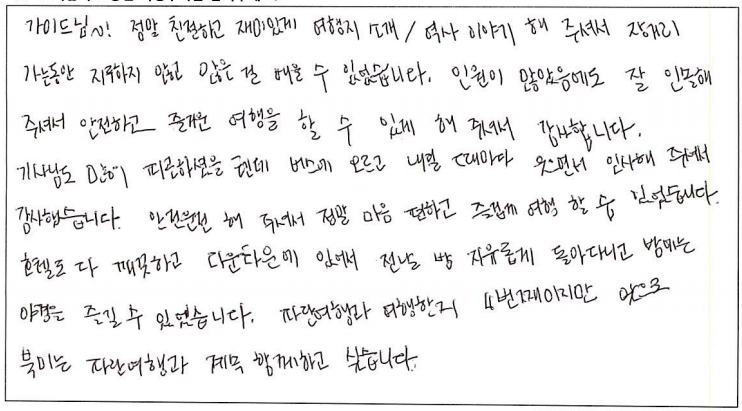 가이드님~! 정말 친절하고 재미있게 여행지 소개 / 역사 이야기 해 주셔서 장거리
가는동안 지루하지 않고 많은 걸 배울 수 있었습니다. 인원이 많았음에도 잘 인솔해
주셔서 안전하고 즐거운 여행을 할 수 있게 해 주셔서 감사합니다.
기사님도 많이 피곤하셨을 텐데 버스에 오르고 내릴 때마다 웃으면서 인사해 주셔서
감사했습니다. 안전운전 해 주셔서 정말 마음 편하고 즐겁게 여행 할 수 있었습니다.
호텔도 다 깨끗하고 다운타운에 있어서 전날 밤 자유롭게 돌아다니고 밤에는
야경을 즐길 수 있었습니다. 파란여행과 여행한지 4번째이지만 앞으로
북미는 파란여행과 계속 함께하고 싶습니다.